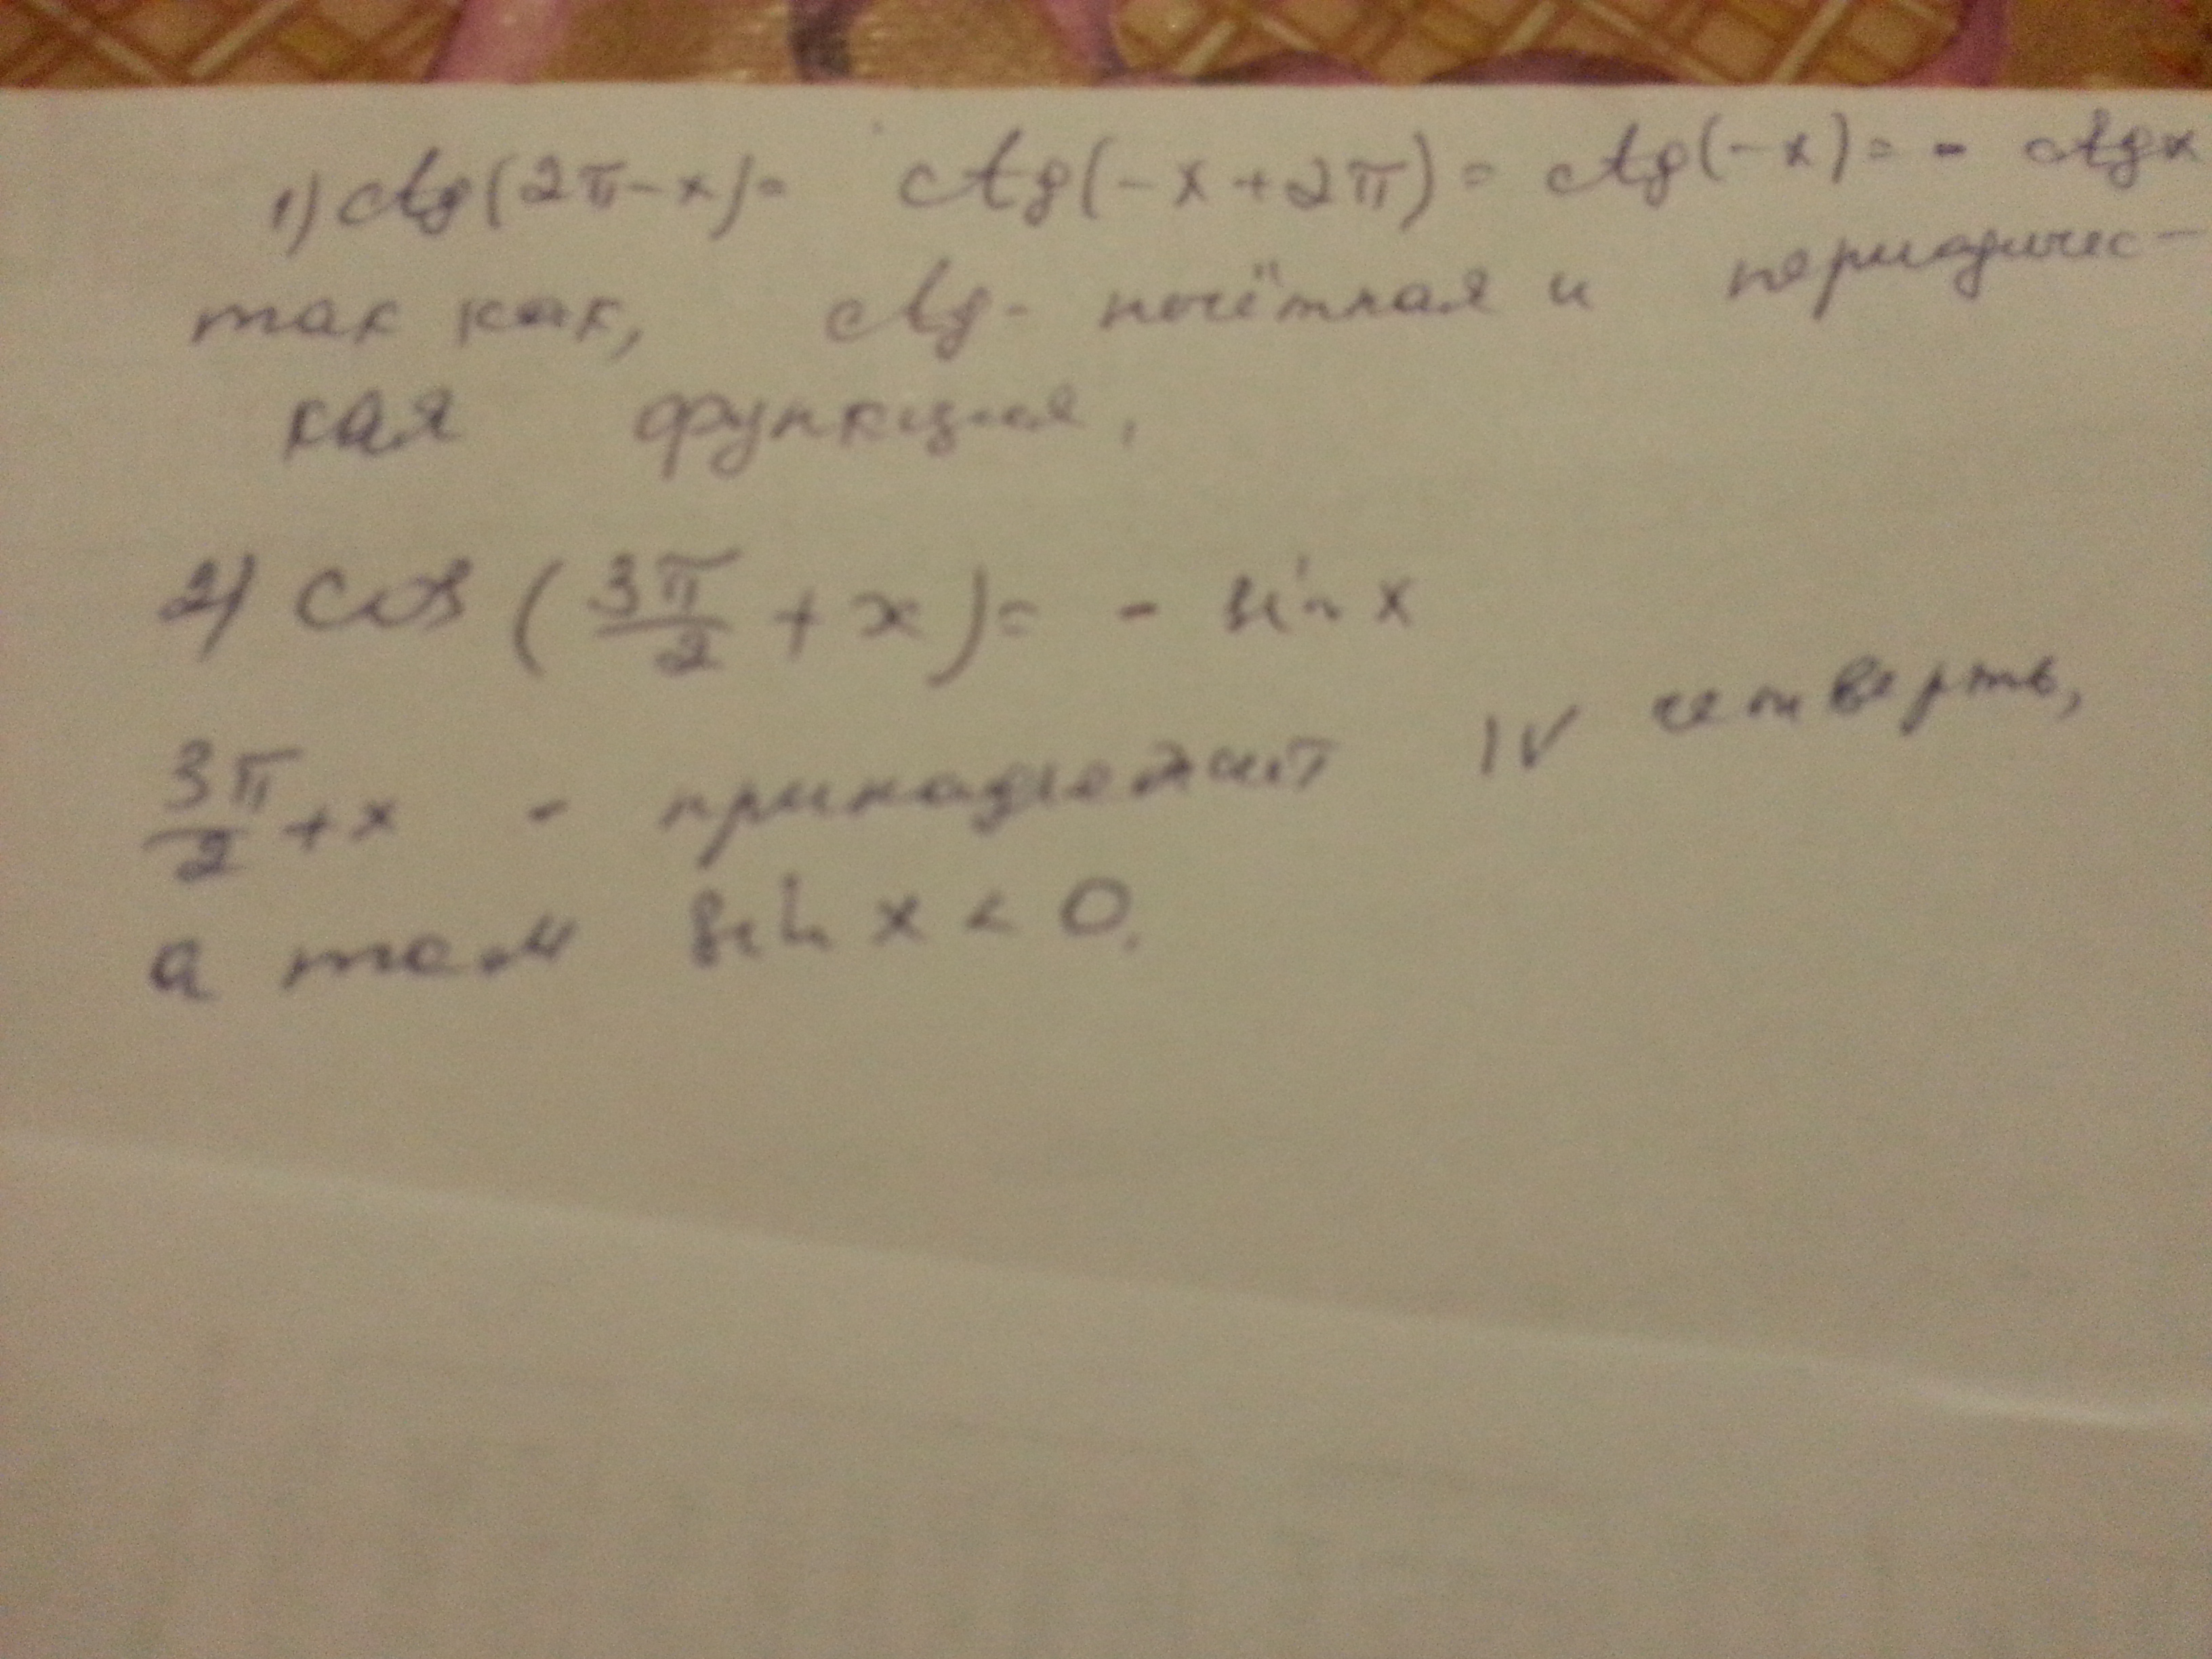 1) ctg(2π-x)= ctg(-x+2π)= ctg(-x)= - ctgx
так как, ctg- нечётная и периодичес-
кая функция,
2) cos (3π/2 + x)= - sin x
3π/2 + x - принадлежит IV четверть,
а там sin x < 0.